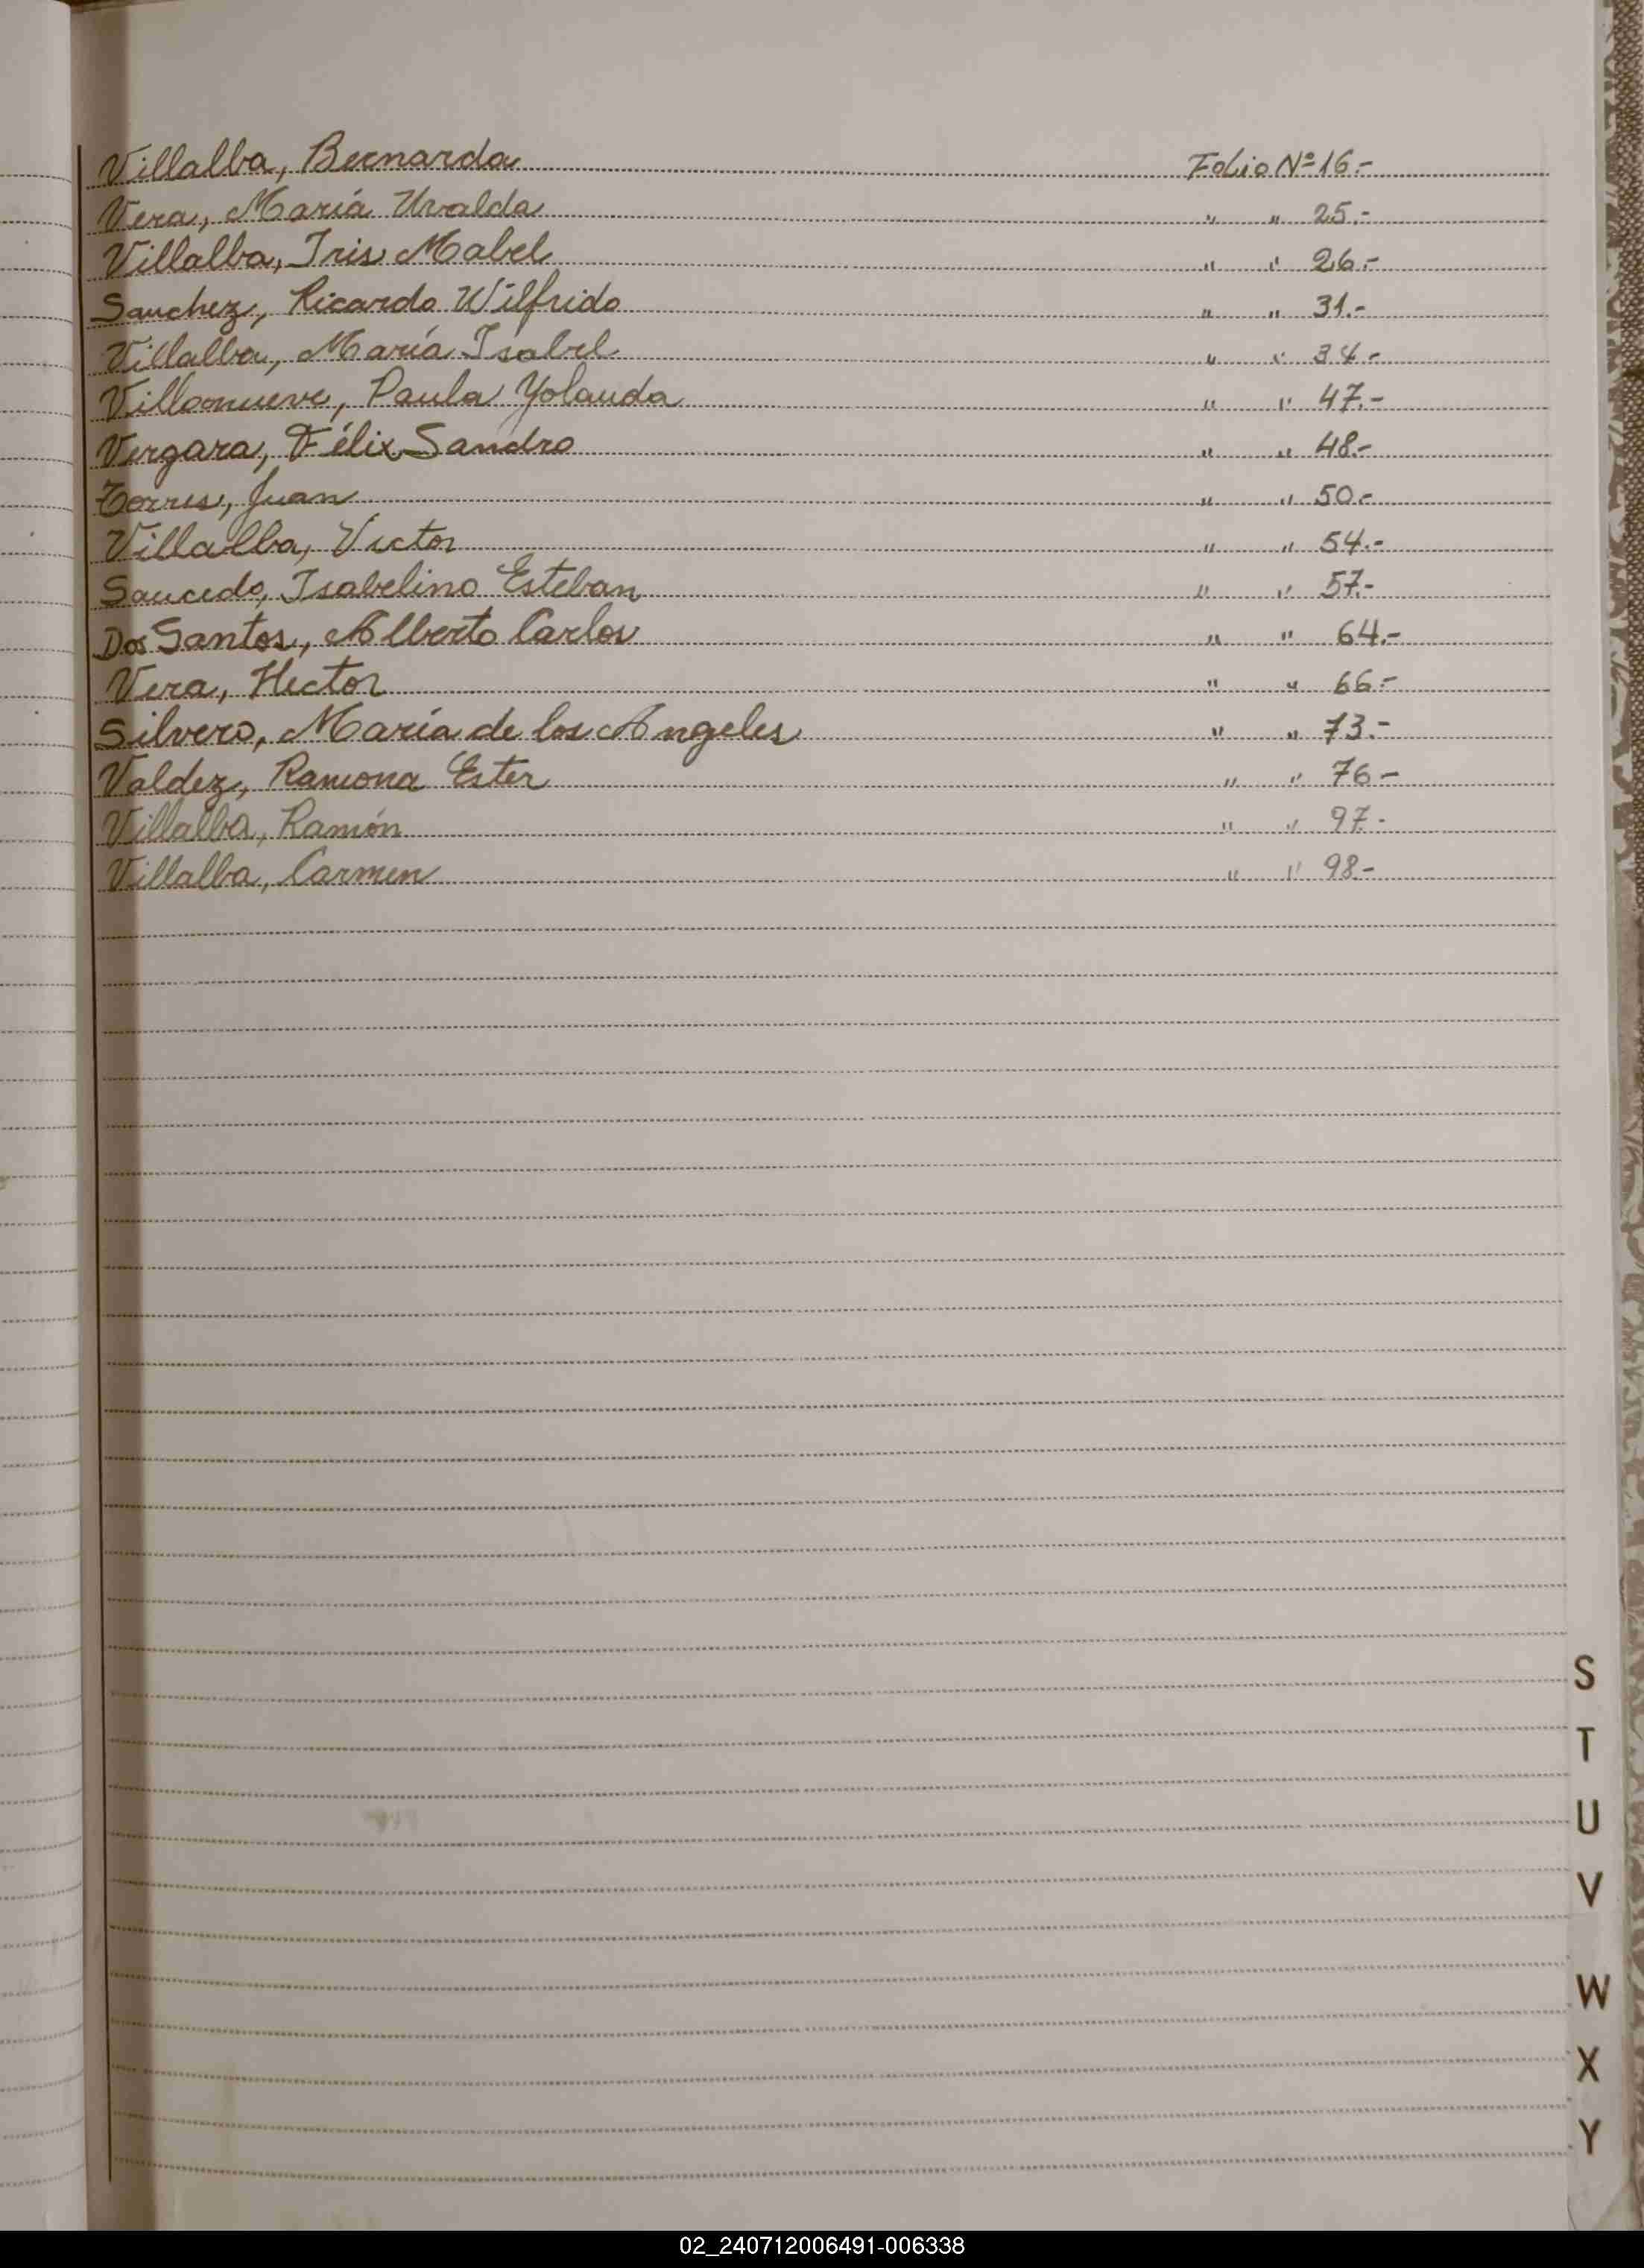 Villalba, Bernarda Folio Nº 16.-
Vera, María Uvalda " " 25.-
Villalba, Iris Mabel " " 26.-
Sanchez, Ricardo Wilfrido " " 31.-
Villalba, María Isabel " " 34.-
Villanueve, Paula Yolanda " " 47.-
Vergara, Félix Sandro " " 48.-
Torres, Juan " " 50.-
Villalba, Victor " " 54.-
Saucedo, Isabelino Esteban " " 57.-
Dos Santos, Alberto Carlos " " 64.-
Vera, Hector " " 66.-
Silvero, María de los Angeles " " 73.-
Valdez, Ramona Ester " " 76-
Villalba, Ramón " " 97.-
Villalba, Carmen " " 98-
S
T
U
V
W
X
Y
02_240712006491-006338